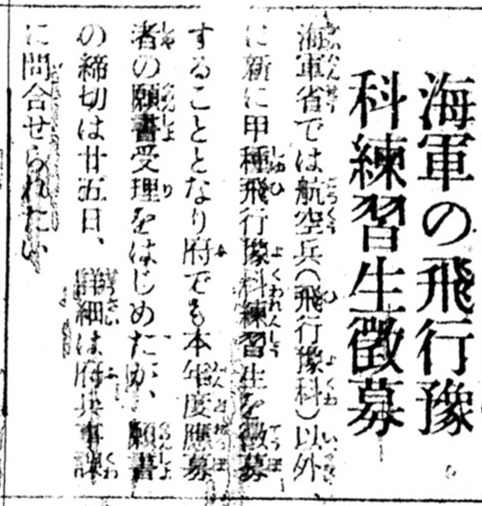 海軍の飛行豫
科練習生徴募
海軍省では航空兵(飛行豫科)以外
に新に甲種飛行豫科練習生を徴募
することとなり府でも本年度應募
者の願書受理をはじめたが、願書
の締切は廿五日、詳細は府兵事課
に問合せられたい